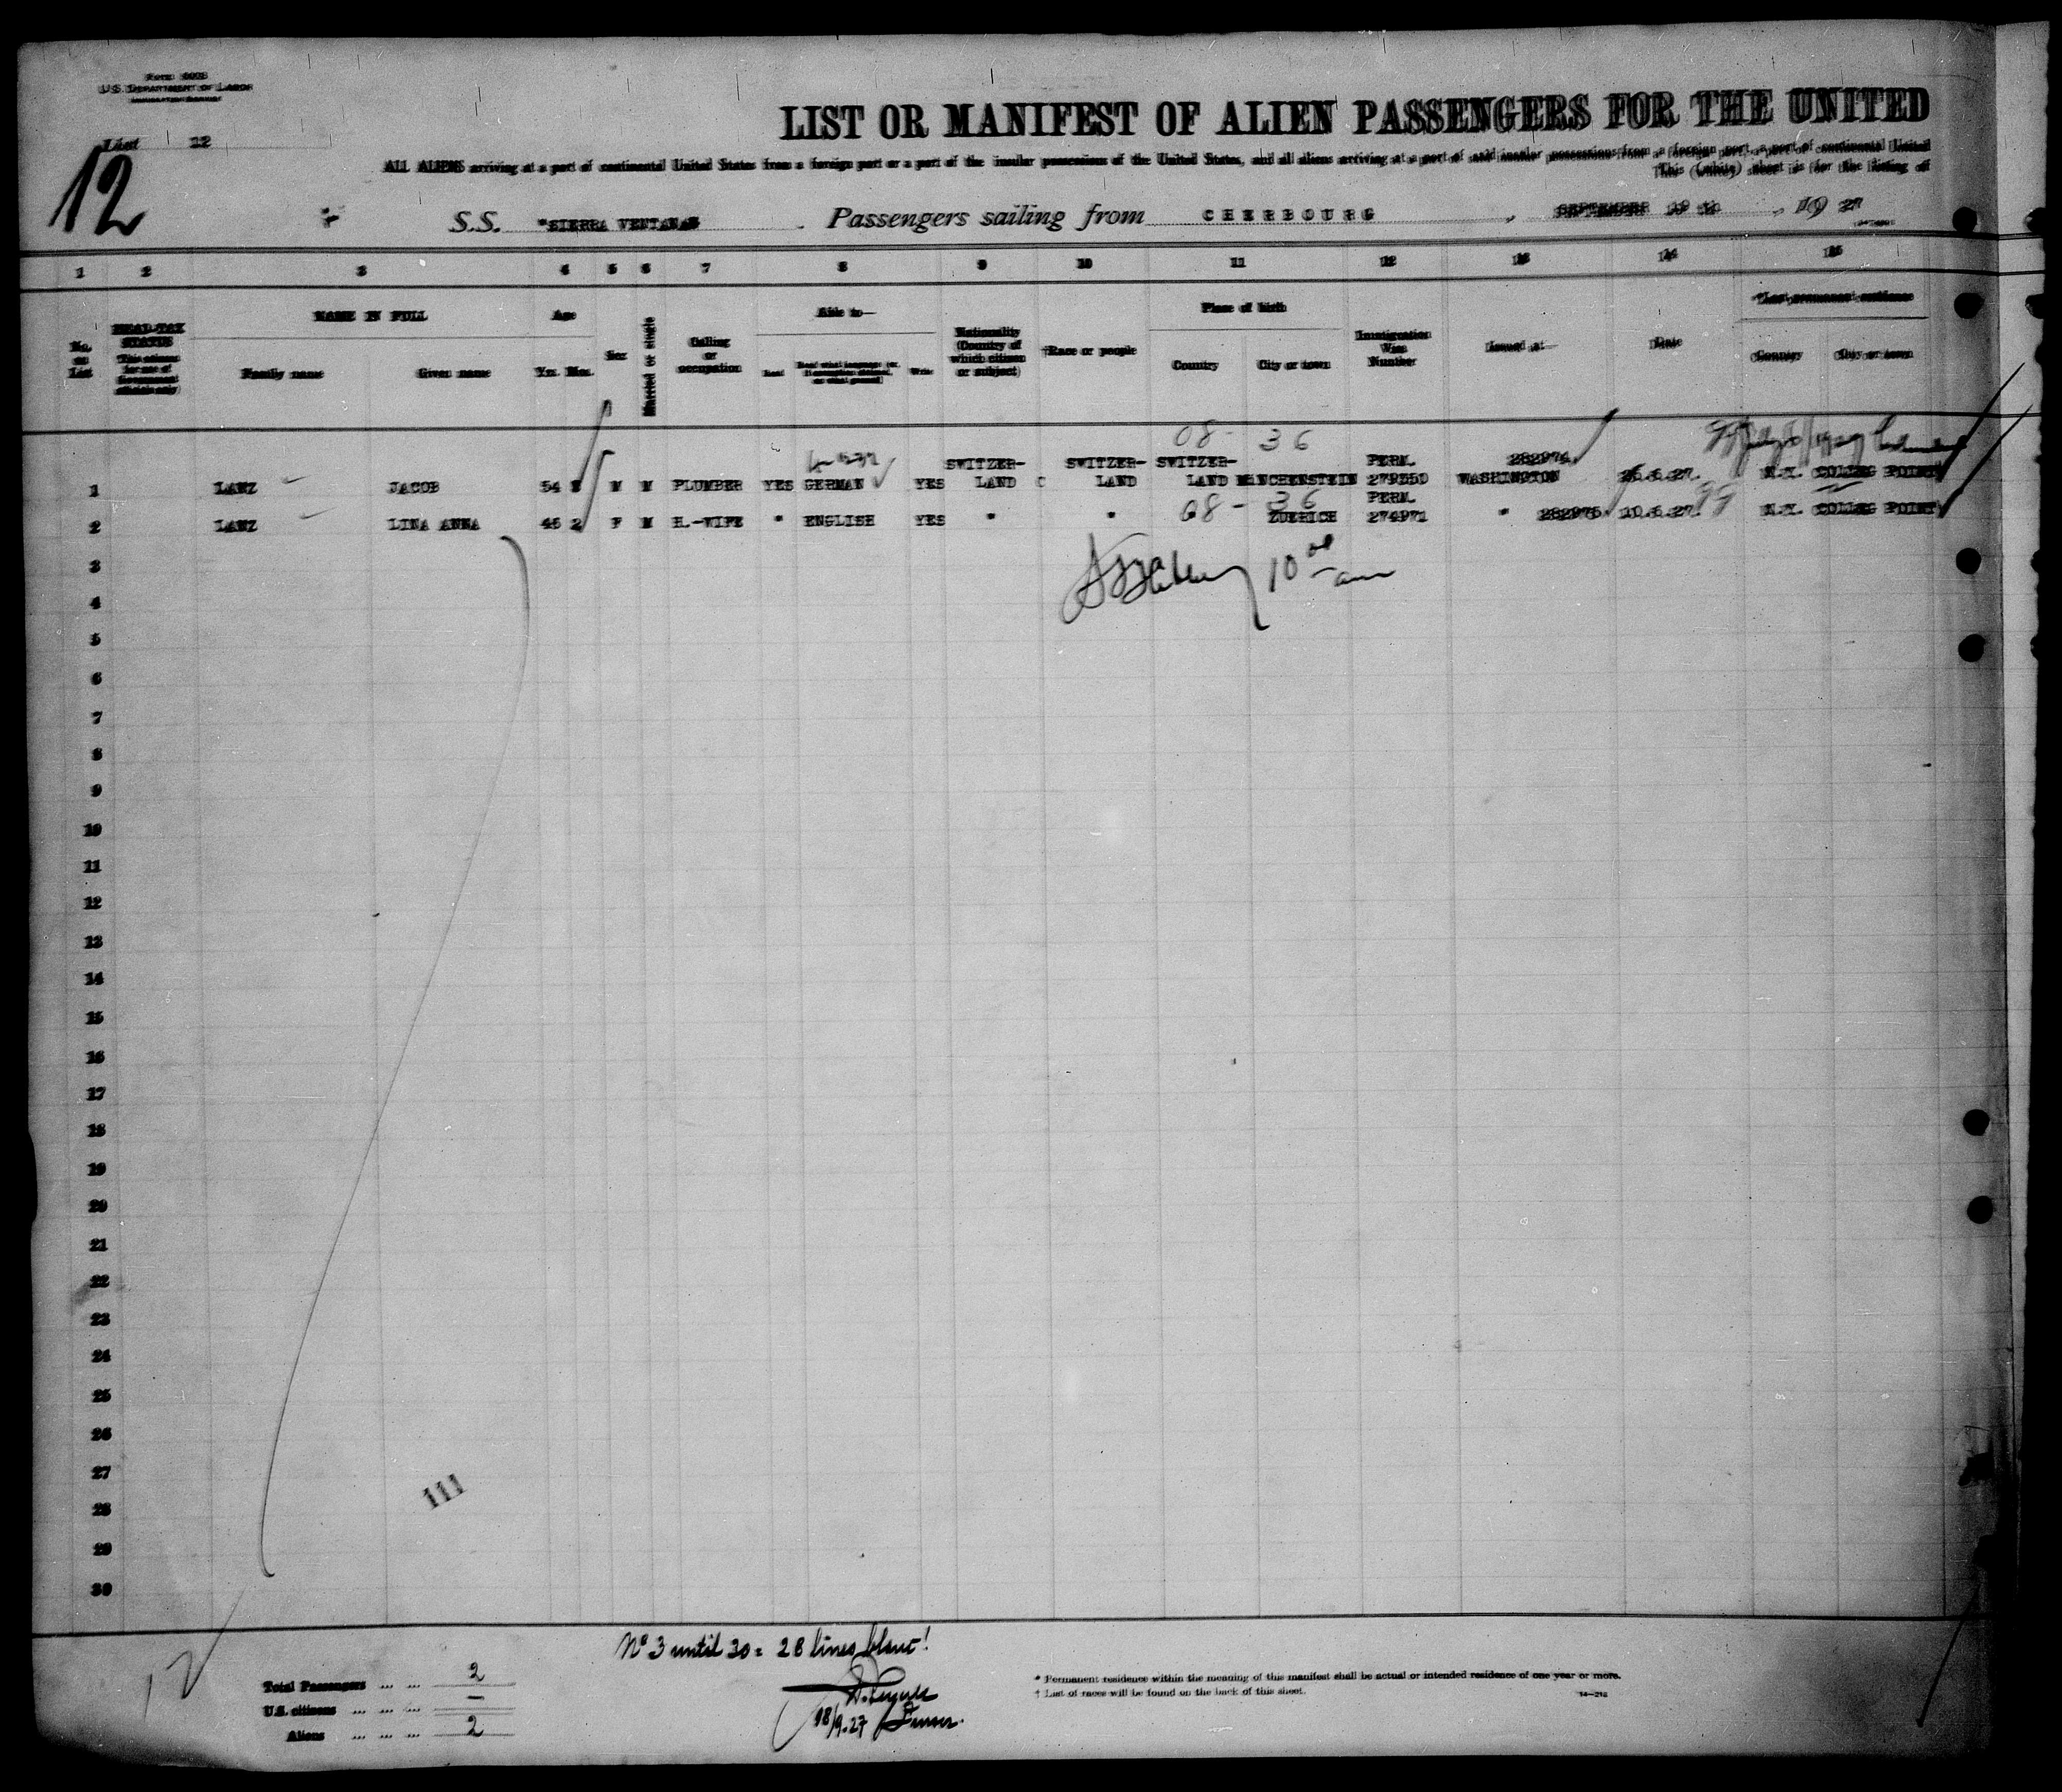 U.S. DEPARTMENT OF LABOR
List 12
12
LIST OR MANIFEST OF ALIEN PASSENGERS FOR THE UNITED
ALL ALIENS arriving at a port of continental United States from a foreign port or a port of the insular possessions of the United States, and all aliens arriving at a port of said insular possessions from a foreign port, a port of continental United
This (white) sheet is for the listing of
S.S. "SIERRA VENTANA" Passengers sailing from CHERBOURG, SEPTEMBER , 19 27
1 2 3 4 5 6 7 8 9 10 11 12 13 14 15
No. on List
HEAD-TAX STATUS (This column for use of Government officials only)
NAME IN FULL
Family name Given name
Age
Yrs. Mos.
Sex
Married or single
Calling or occupation
Able to—
Read Read what language (or, if exemption claimed, on what ground) Write
Nationality (Country of which citizen or subject)
†Race or people
Place of birth
Country City or town
Immigration Visa Number
Issued at—
Date
*Last permanent residence
Country City or town
08- 36
1 LANZ JACOB 54 M M PLUMBER YES GERMAN YES SWITZER-LAND SWITZER-LAND SWITZER-LAND PERM. 282974 WASHINGTON N.Y. COLLEG POINT
08- 36
2 LANZ LINA ANNA 45 2 F M H.-WIFE " ENGLISH YES " " " ZUERICH PERM. 274971 " 282975 N.Y. COLLEG POINT
10 00 am
3
4
5
6
7
8
9
10
11
12
13
14
15
16
17
18
19
20
21
22
23
24
25
26
27
28
29
30
111
No 3 until 30 = 28 lines blanc!
18/9.27
12
Total Passengers ... ... 2
U.S. citizens ... ... ... —
Aliens ... ... ... 2
* Permanent residence within the meaning of this manifest shall be actual or intended residence of one year or more.
† List of races will be found on the back of this sheet.